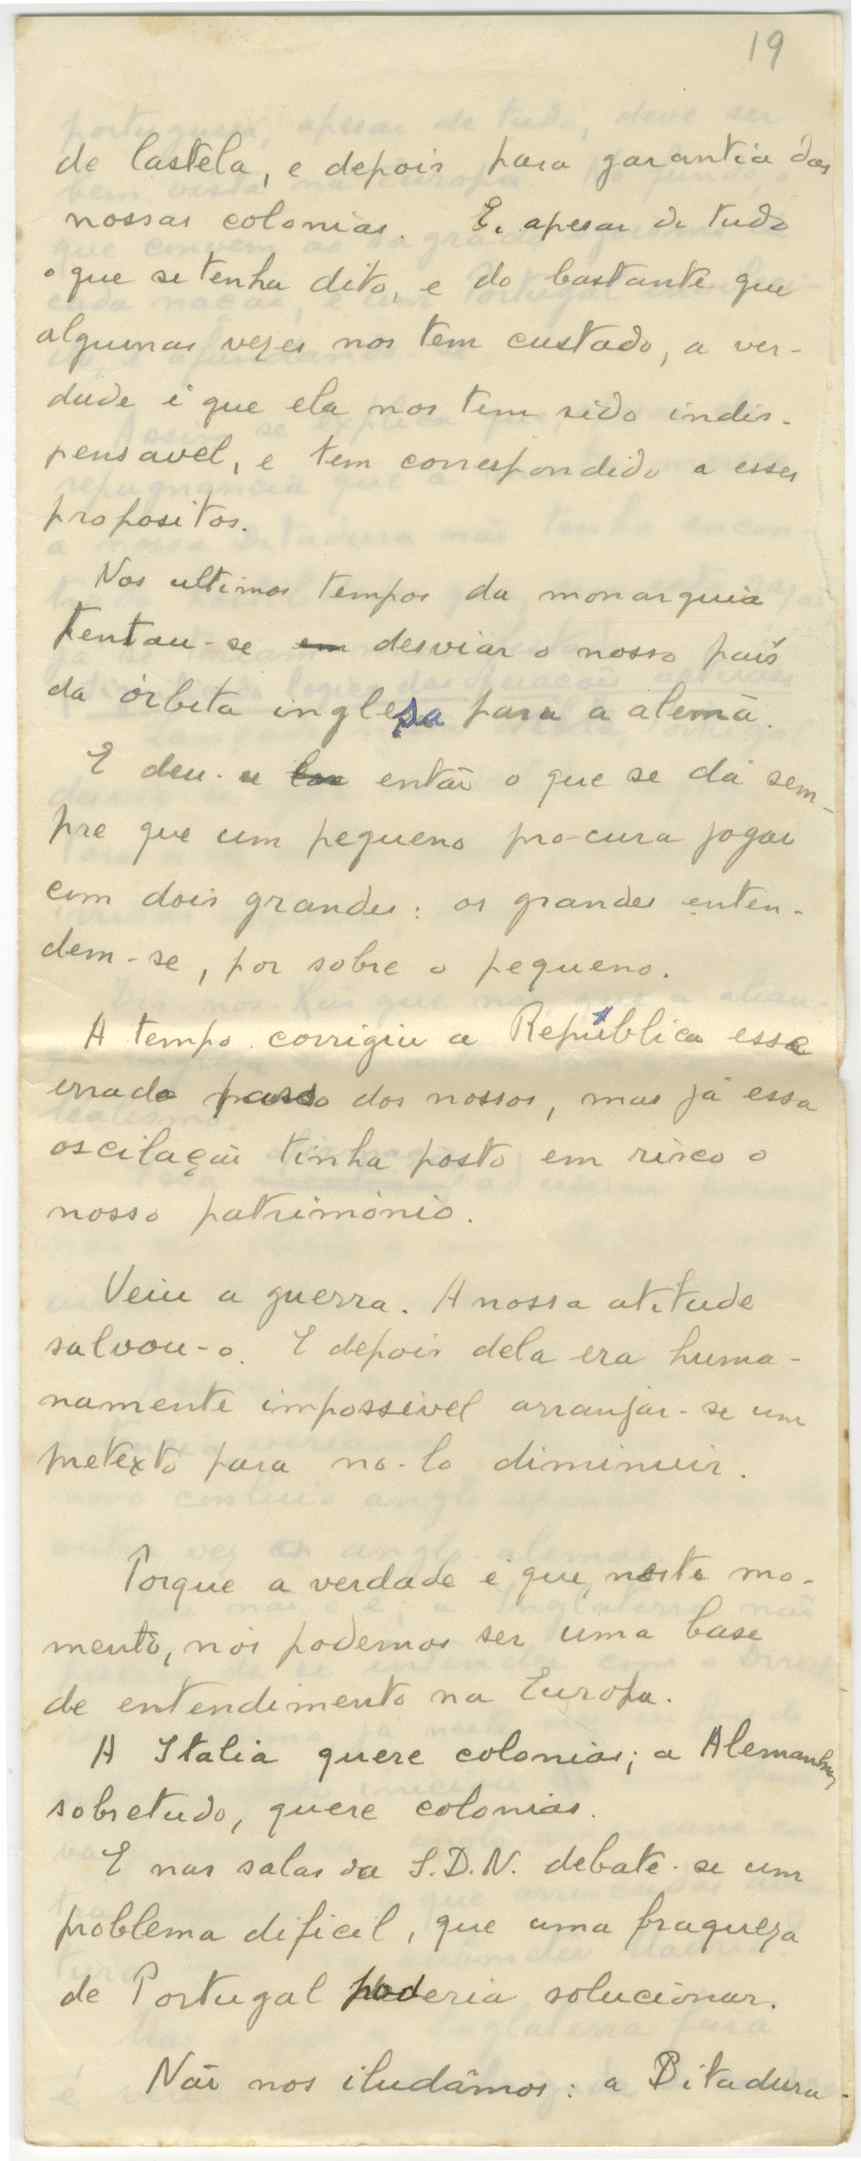 19
de Castela, e depois para garantia das
nossas colonias. E, apesar de tudo
o que se tenha dito, e do bastante que
algumas vezes nos tem custado, a ver-
dade é que ela nos tem sido indis-
pensavel, e tem correspondido a esses
propositos.
Nos ultimos tempos da monarquia
tentou-se em desviar o nosso país
da órbita inglesa para a alemã.
E deu-se então o que se dá sem-
pre que um pequeno procura jogar
com dois grandes: os grandes enten-
dem-se, por sobre o pequeno.
A tempo corrigiu a República esse
errado passo dos nossos, mas já essa
oscilação tinha posto em risco o
nosso património.
Veiu a guerra. A nossa atitude
salvou-o. E depois dela era huma-
namente impossivel arranjar-se um
pretexto para no-lo diminuir.
Porque a verdade é que, neste mo-
mento, nós podemos ser uma base
de entendimento na Europa.
A Italia quere colonias; a Alemanha,
sobretudo, quere colonias.
E nas salas da S.D.N. debate-se um
problema dificil, que uma fraqueza
de Portugal poderia solucionar.
Não nos iludâmos: a Ditadura